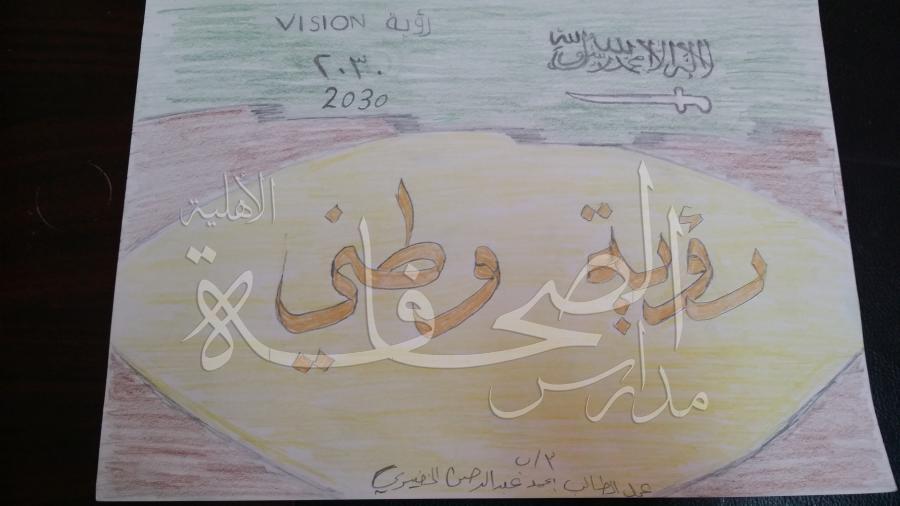 رؤية VISION
٢٠٣٠
2030
لا إله إلا الله محمد رسول الله
رؤية وطني
مدارس الصحافية الأهلية
٣/ب
عمل الطالب عبدالرحمن